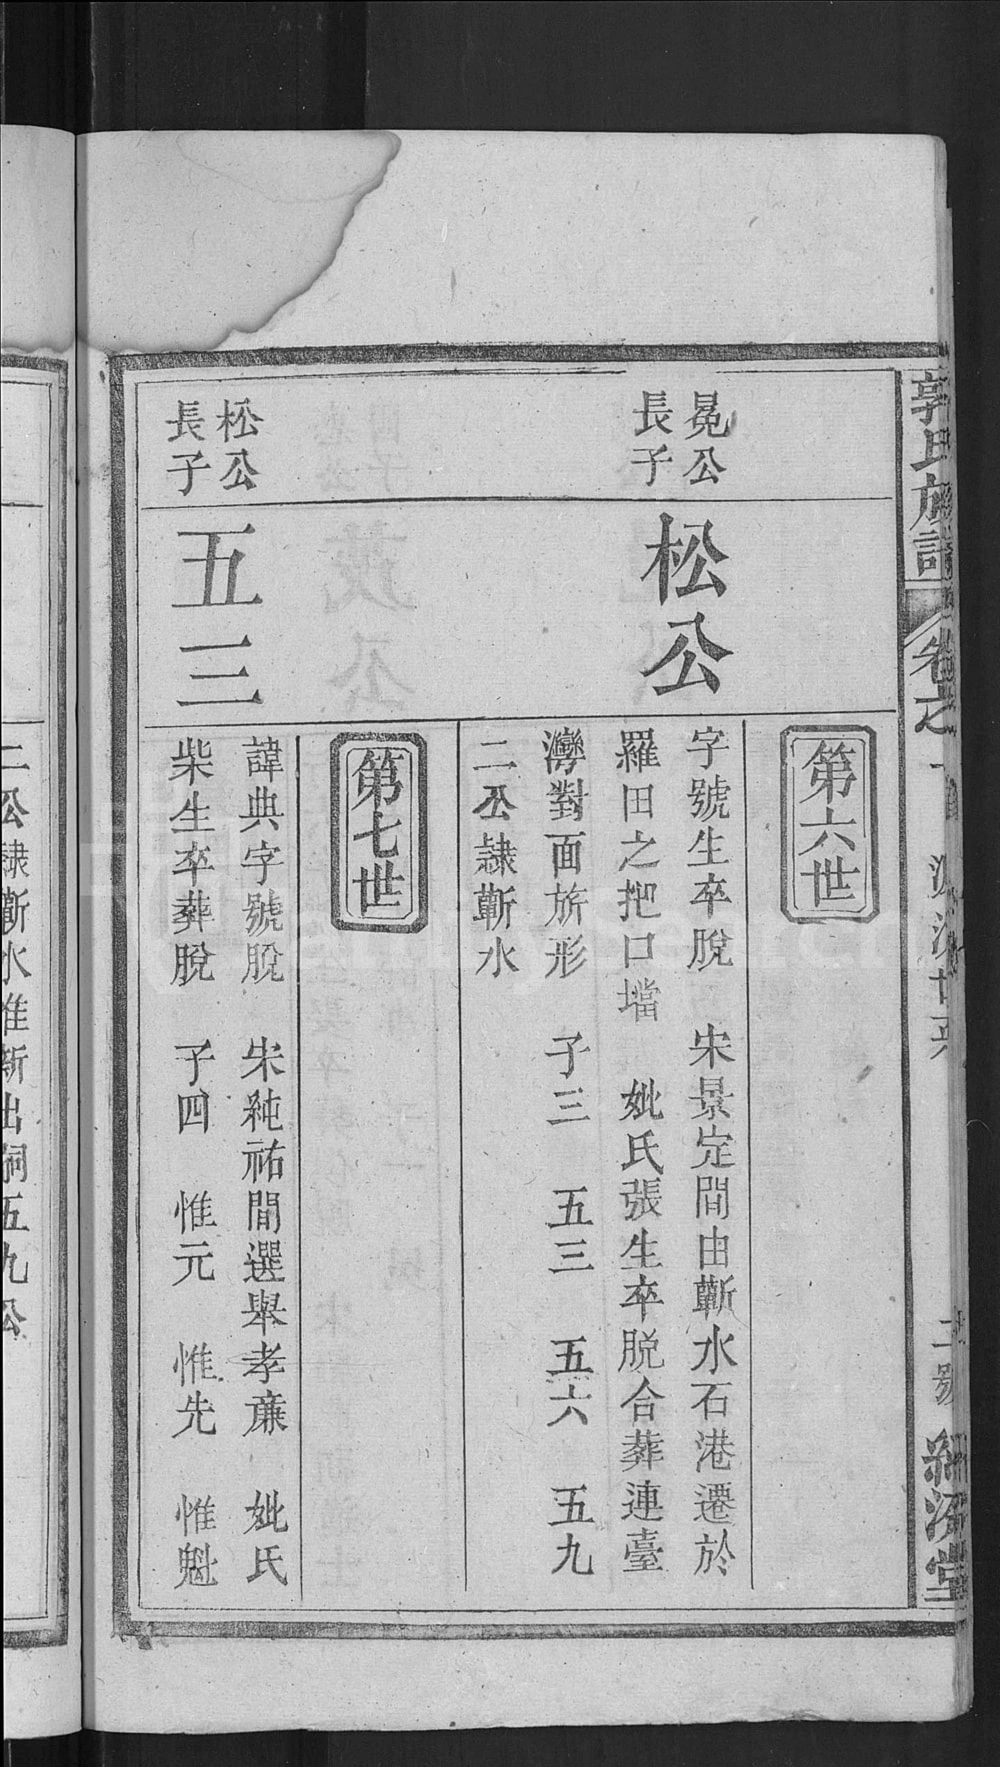 郭氏族譜
卷之
二號
第六世
晃公
長子
松公
字號生卒脫 宋景定間由蘄水石港遷於
羅田之把口壋 妣氏張生卒脫合葬連臺
灣對面旂形 子三 五三 五六 五九
二公隷蘄水
第七世
松公
長子
五三
諱典字號脫 宋純祐間選舉孝亷 妣氏
柴生卒葬脫 子四 惟元 惟先 惟魁
二公隷蘄水惟新出嗣五九公